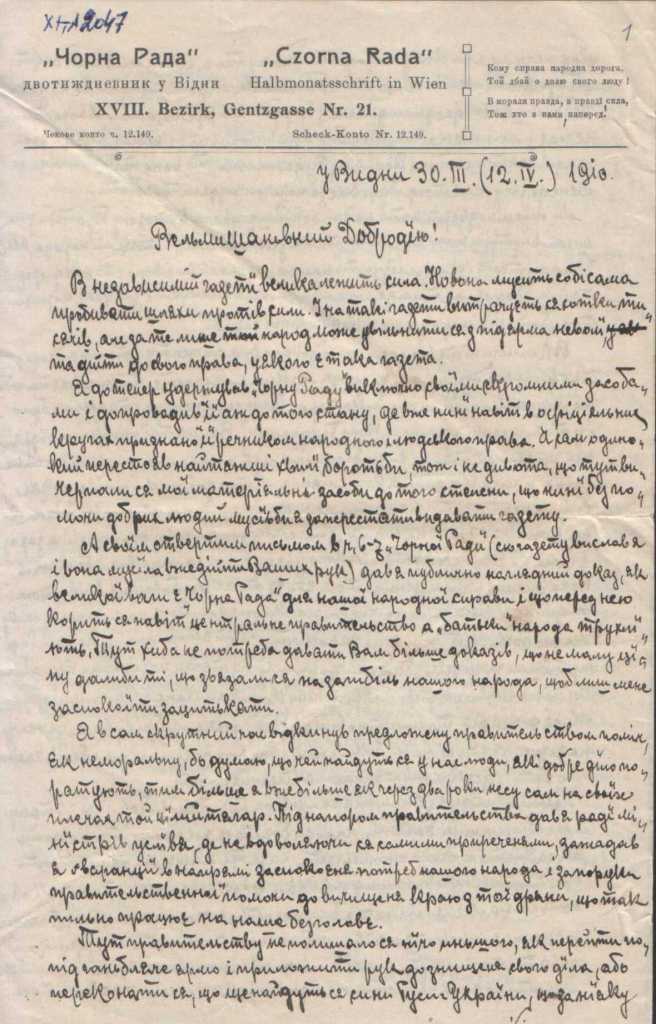 ХНА 2047
1
„Чорна Рада“
двотиждневник у Відни
„Czorna Rada“
Halbmonatsschrift in Wien
XVIII. Bezirk, Gentzgasse Nr. 21.
Чекове конто ч. 12.149.
Scheck-Konto Nr. 12.149.
Кому справа народна дорога,
Той дбай о долю свого люду!
В морали правда, в правді сила,
Тож хто з нами, наперед!
у Видни 30. III. (12. IV.) 1910.
Вельмишановний Добродїю!
В независимій газетї велика лежить сила. Но вона мусить собі сама
пробивати шляхи против сили. І на такі газети витрачуєть ся сотки ти-
сячів, але за те лише той народ може увільнити ся з під ярма неволї,
та дійти до свого права, у якого є така газета.
Я до тепер удержував „Чорну Раду“ виключно своїми скромними засоба-
ми і допровадив її аж до того стану, де вже нинї навіть в офіціяльних
кругах признано її речником народного і людського права. Я сам одино-
кий перестояв найтяжші хвилї боротьби, тож і не дивота, що тут ви-
черпали ся мої материяльнї засоби до того степени, що нинї без по-
мочи добрих людий мусїв би я заперестати видавати газету.
А своїм отвертим письмом в ч. 6-7 „Чорної Ради“ (сю газету вислав я
і вона мусїла вже дійти Ваших рук) дав я публично наглядний доказ, як
великої ваги є „Чорна Рада“ для нашої народної справи і що перед нею
корить ся навіть центральне правительство а „батьки“ народа трухлї-
ють. Тут хиба не потреба давати Вам більше доказів, що не малу цї-
ну дали би ті, що звязали ся на загибіль нашого народа, щоб лиш мене
заспокоїти зацитькати.
Я в сам скрутний час відкинув предложену правительством поміч,
як неморальну, бо думаю, що чей найдуть ся у нас люди, які добре дїло по-
ратують, тим більше я вже більше як через два роки несу сам на своїх
плечах той цїлий тягар. Під напором правительства дав я радї мі-
нїстрів услівя, де не вдоволяючи ся самими приреченями, зажадав
я ґваранциї в напрямі заспокоєня потреб нашого народа і запоруки
правительственної помочи до вичищеня краю з тої дряни, що так
пильно працює на наше безголовє.
Тут правительству не полишало ся нїчо иньшого, як перейти по-
під ганьбляче ярмо і приложити рук до знищеня свого дїла, або
переконати ся, що ще найдуть ся сини Руси України, що за нїяку